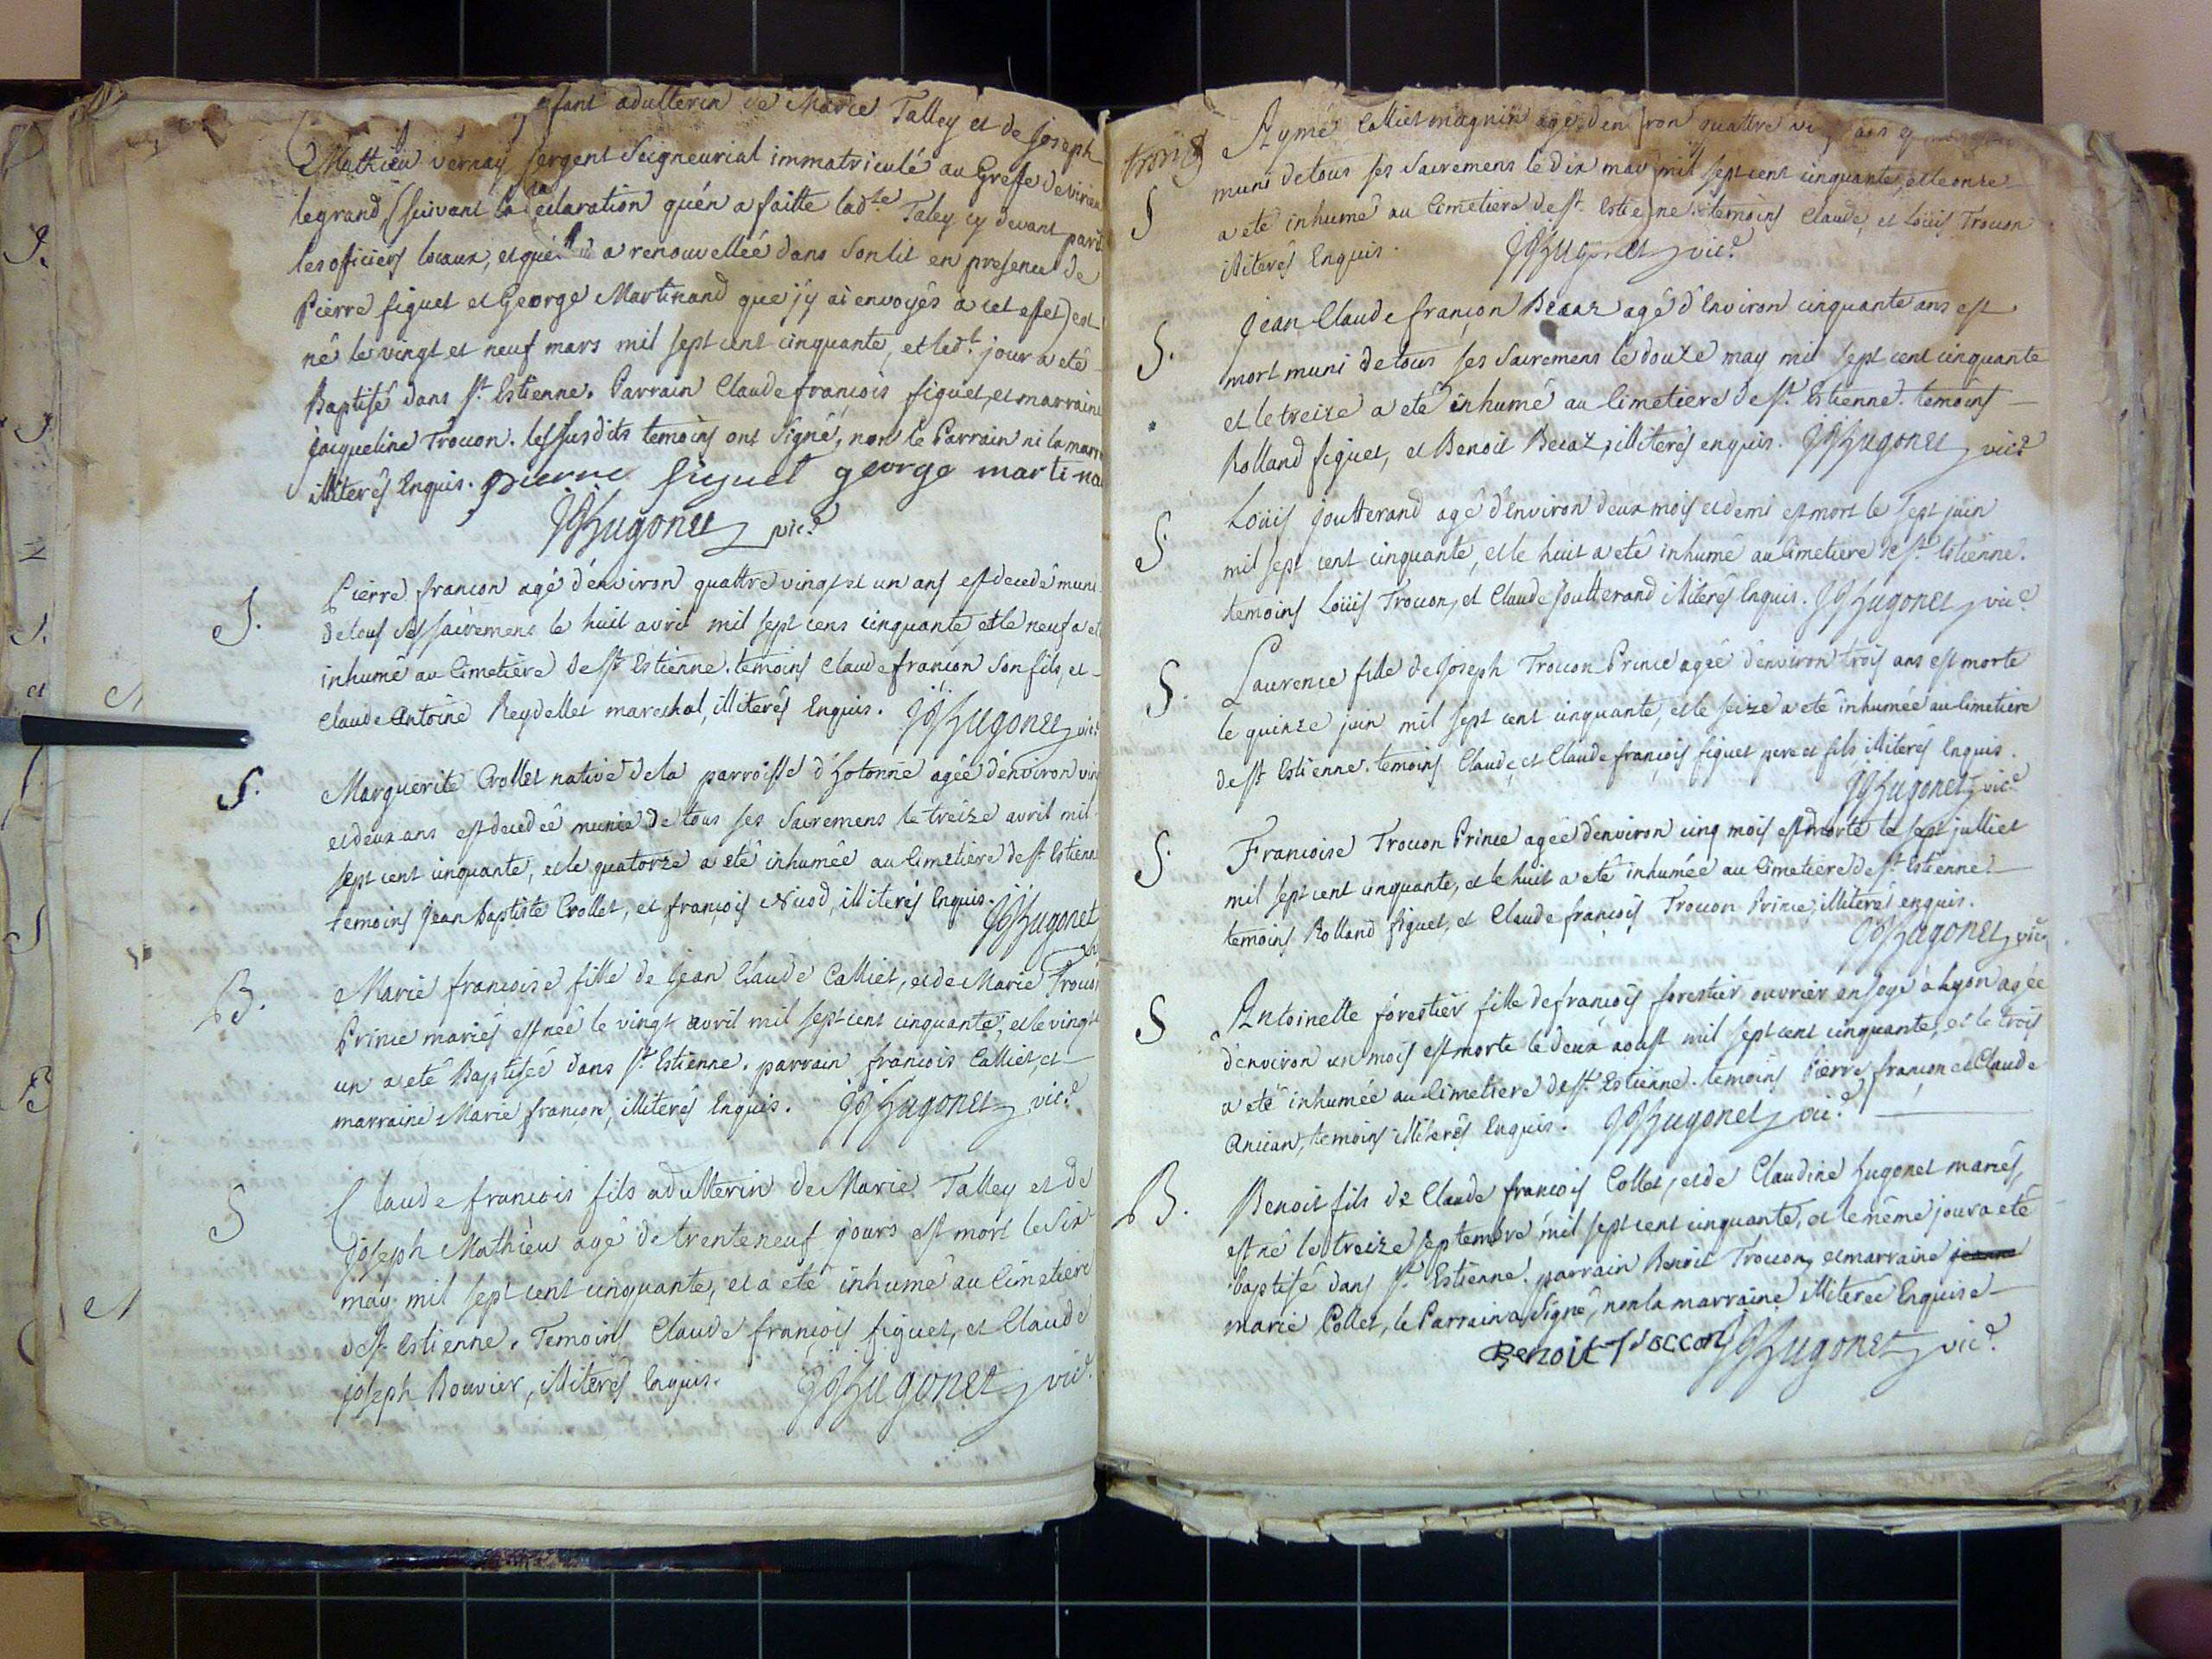 enfant adulterin de Marie Talley et de Joseph
Mathieu vernay sergent Seigneurial immatriculé au Grefe de virieu
legrand, (suivant la declaration quén a faitte lad.te Taley cy devant pard
les oficiers locaux, et a renouvelléé dans son lit en presence de
Pierre figuet et George Martinand que j'y ai envoyés a cet effet) est
né le vingt et neuf mars mil sept cent cinquante, et led.t jour a eté
Baptisé dans S.t Estienne. Parrain Claude francois figuet, et marraine
jacqueline Trocon. les susdits temoins ont signé, non le Parrain ni la marr
illiterés Enquis. pierre figuet george martina
JJHugonet vic.e
S. Pierre francon agé d'environ quattre vingt et un ans est decedé muni
de tous ses sacremens le huit avril mil sept cens cinquante et le neuf a eté
inhumé au Cimetière de St Estienne. temoins Claude francon son fils, et
Claude Antoine Reydellet mareshal, illiterés Enquis. JJHugonet vic.e
S. Marguerite Crollet native de la parroisse d'hotonne agée d'environ vin
et deux ans est decedeé munie de tous ses Sacremens le treize avril mil
sept cent cinquante, et le quatorze a eté inhumée au Cimetière de St Estienne
temoins Jean baptiste Crollet, et françois Nicod, illiterés Enquis. JJHugonet
B. Marie francoise fille de Jean Claude Calliet, et de Marie Trocon
Prince mariés est neé le vingt avril mil sept cent cinquante, et le vingt
un a eté Baptisée dans S.t Estienne. parrain francois Calliet, et
marraine Marie francon, illiterés Enquis. JJHugonet vic.e
S Claude francois fils adulterin de Marie Talley et de
Joseph Mathieu agé de trente neuf jours est mort le Six
may mil sept cent cinquante, et a eté inhumé au Cimetiere
de St Estienne. Temoins Claude françois figuet, et Claude
joseph Bouvier, illiterés Enquis. JJHugonet vic.e
Aymé Calliet magnin agé d'environ quattre vi ans
muni de tous ses Sacremens le dix may mil sept cent cinquante, et le onze
S a eté inhumé au Cimetiere de St. Estienne. temoins Claude, et Loüis Trocon
illiterés Enquis. JJHugonet vic.e
S. Jean Claude françon Beaaz agé d'Environ cinquante ans est
mort muni de tous ses Sacremens le douze may mil sept cent cinquante
et le treize a eté inhumé au Cimetiere de St. Estienne. temoins
Rolland figuet, et Benoit Becaz, illiterés enquis. JJHugonet vic.e
S. Loüis Joutterand agé d'Environ deux mois et demi est mort le sept juin
mil sept cent cinquante, et le huit a eté inhumé au Cimetiere de St. Estienne.
temoins Loüis Trocon, et Claude Joutterand illiterés Enquis. JJHugonet vic.e
S. Laurence fille de Joseph Trocon Prince agée d'environ trois ans est morte
le quinze juin mil sept cent cinquante, et le seize a eté inhumée au Cimetiere
de St Estienne. temoins Claude, et Claude françois figuet pere et fils illiterés Enquis.
JJHugonet vic.e
S. Francoise Trocon Prince agée d'environ cinq mois est morte le sept julliet
mil sept cent cinquante, et le huit a eté inhumée au Cimetiere de St. Estienne.
temoins Rolland figuet, et Claude françois Trocon Prince, illiterés enquis.
JJHugonet vic.e
S Antoinette forestier fille de françois forestier ouvrier en soye a Lyon agée
d'environ un mois est morte le deux aoust mil sept cent cinquante, et le trois
a eté inhumée au Cimetiere de St. Estienne. temoins Pierre françon et Claude
Ancian, temoins illiterés Enquis. JJHugonet vic.e
B. Benoit fils de Claude françois Collet, et de Claudine hugonet mariés,
est né le treize septembre mil sept cent cinquante, et le même jour a eté
baptisé dans S.t Estienne. parrain Benoit Trocon, et marraine jeanne
marie Collet, le Parrain a Signé, non la marraine illiterée Enquise
Benoit Troccon JJHugonet vic.e